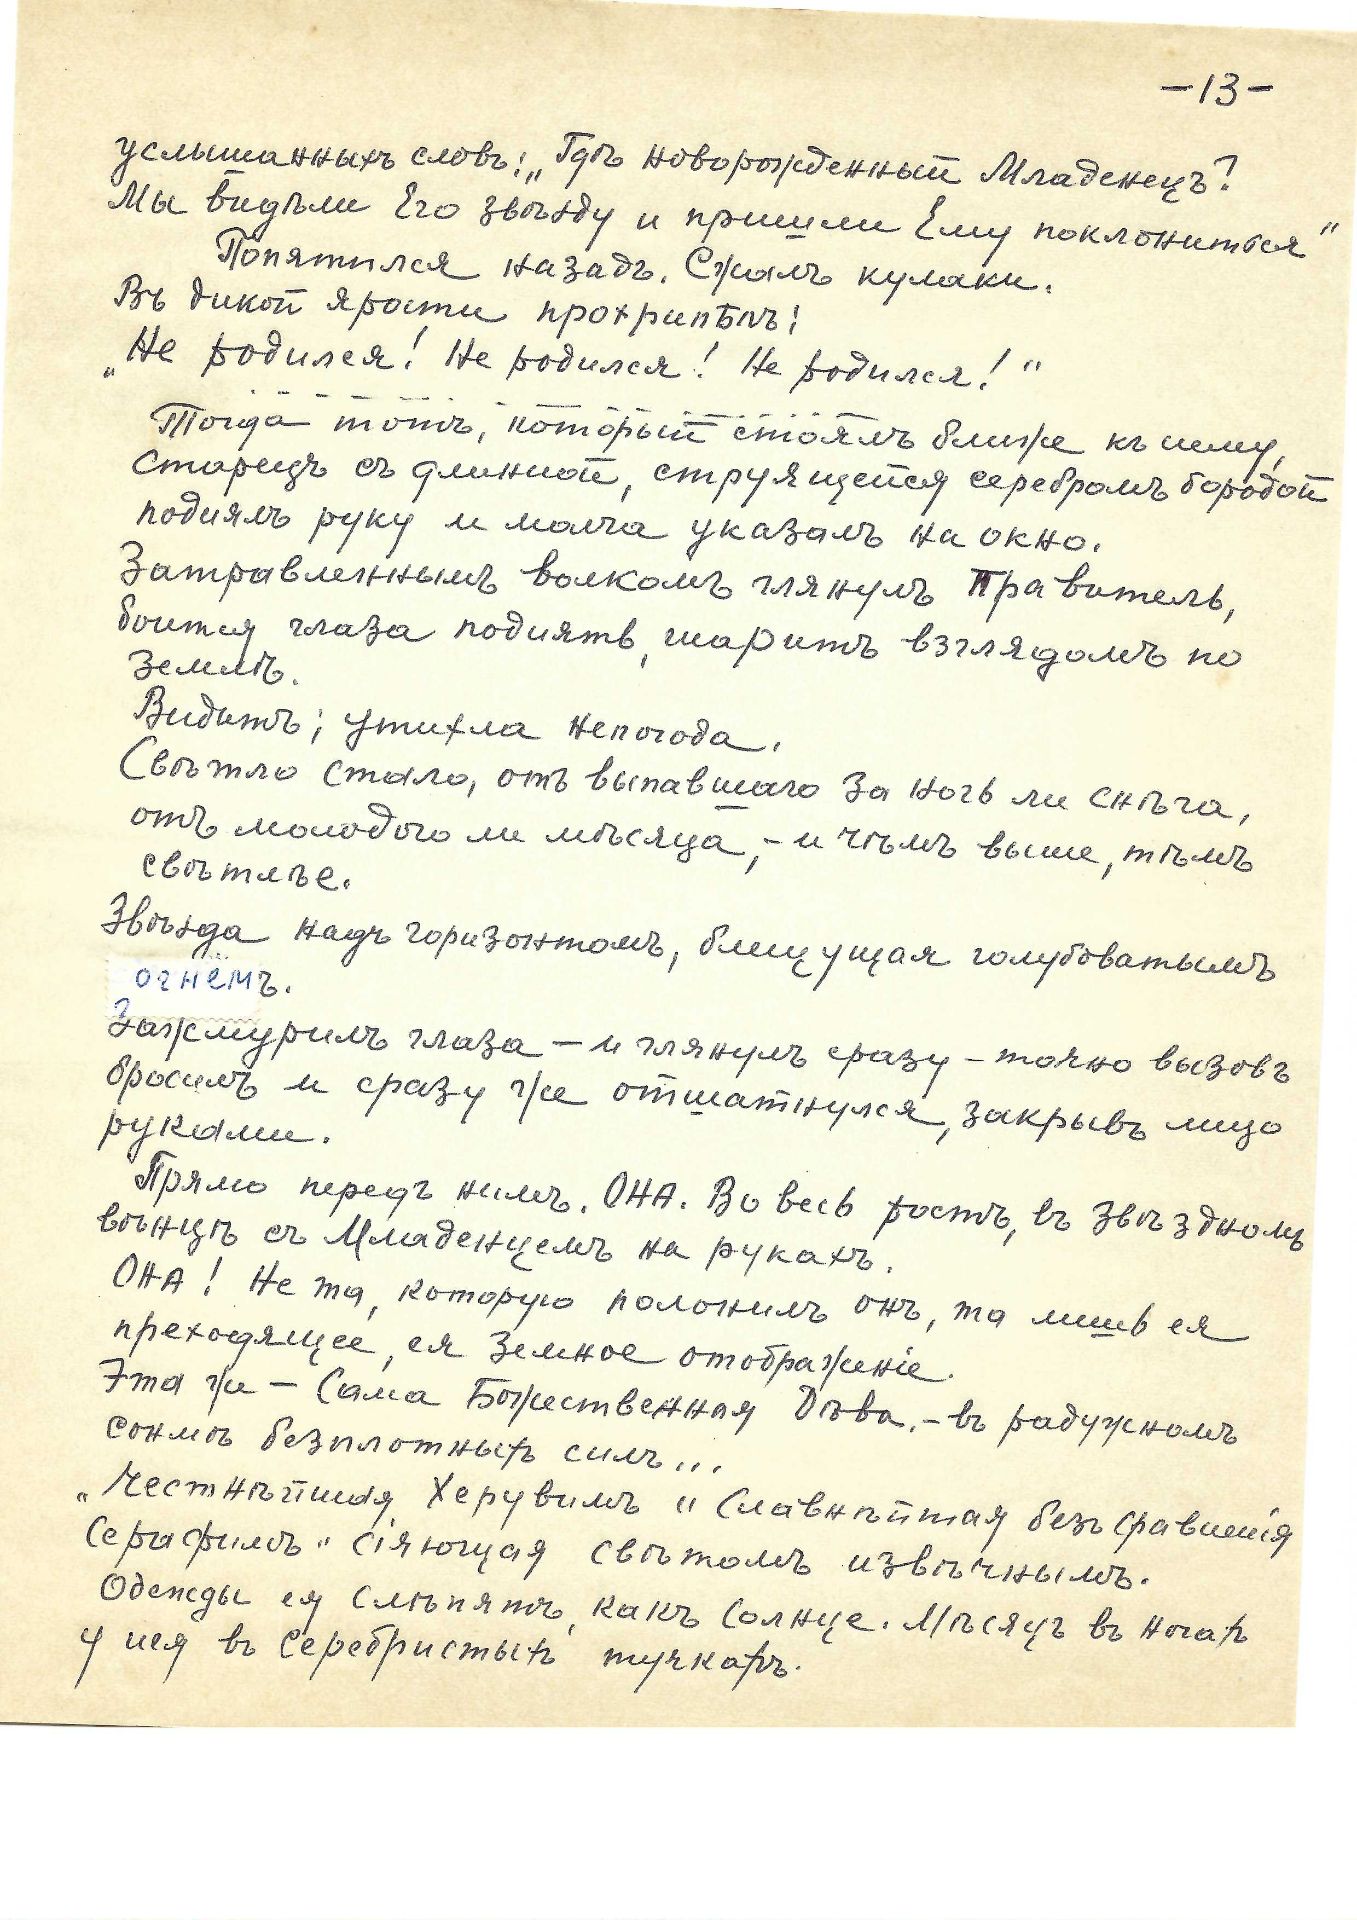 -13-
услышанныхъ словъ: „Гдѣ новорожденный Младенецъ?
Мы видѣли Его звѣзду и пришли Ему поклониться"
Попятился назадъ. Сжалъ кулаки.
Въ дикой ярости прохрипѣлъ:
„Не родился! Не родился! Не родился!"
Тогда тотъ, который стоялъ ближе къ нему,
старецъ съ длинной, струящейся серебромъ бородой
поднялъ руку и молча указалъ на окно.
Затравленнымъ волкомъ глянулъ Правитель,
боится глаза поднять, шаритъ взглядомъ по
землѣ.
Видитъ; утихла непогода.
Свѣтло стало, отъ выпавшаго за ночь ли снѣга,
отъ молодого ли мѣсяца, - и чѣмъ выше, тѣмъ
свѣтлѣе.
Звѣзда надъ горизонтомъ, блещущая голубоватымъ
огнёмъ.
Зажмурилъ глаза - и глянулъ сразу - точно вызовъ
бросилъ и сразу же отшатнулся, закрывъ лицо
руками.
Прямо передъ нимъ. ОНА. Во весь ростъ, въ звѣздномъ
вѣнцѣ съ Младенцемъ на рукахъ.
ОНА! Не та, которую положилъ онъ, та лишь ея
преходящее, ея земное отображеніе.
Эта же - Сама Божественная Дѣва. - въ радужномъ
сонмѣ безплотныхъ силъ...
„Честнѣйшая Херувимъ и Славнѣйшая безъ сравненія
Серафимъ" сіяющая свѣтомъ извѣчнымъ.
Одежды ея слѣпятъ, какъ солнце. Мѣсяцъ въ ногахъ
у нея въ серебристыхъ тучкахъ.